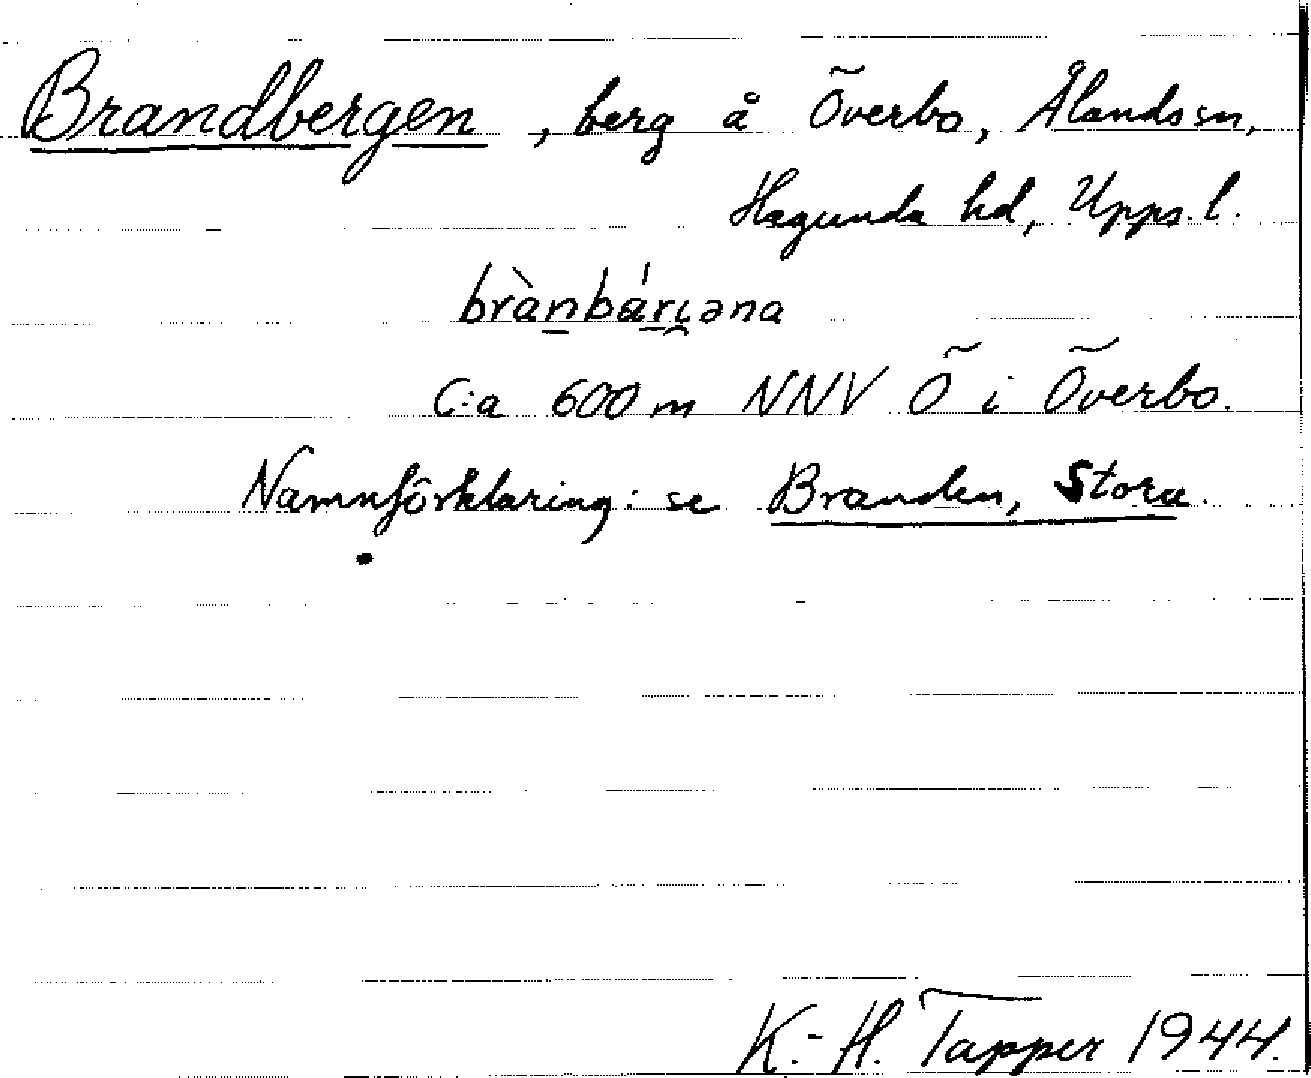 Brandbergen, berg å Överbo, Ålands sn,
Hagunda hd, Upps. l.
brànbárɩ̯əna
C:a 600 m NNV Ö i Överbo.
Namnförklaring: se Branden, Stora.
K.-H. Tapper 1944.